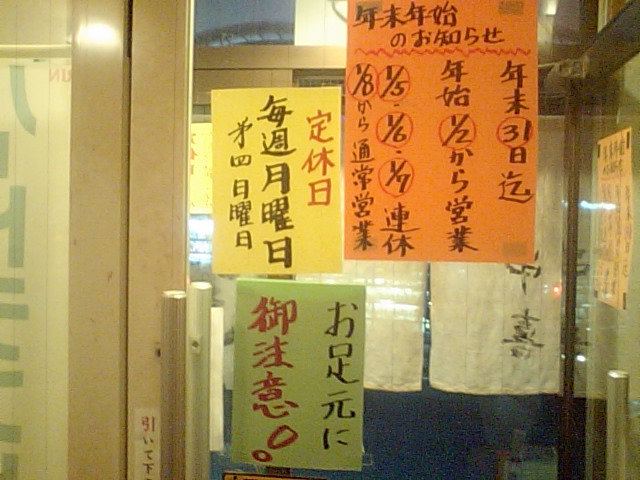 年末年始
のお知らせ
年末31日迄
年始1/2から営業
1/5・1/6・1/7連休
1/8から通常営業
定休日
毎週月曜日
第四日曜日
お足元に
御注意!
引いて下